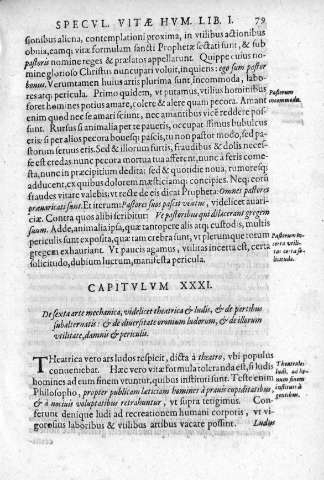 SPECVL. VITÆ HVM. LIB. I. 79
sionibus aliena, contemplationi proxima, in vtilibus actionibus
obnixa, eamq; vitæ formulam sancti Prophetæ sectati sunt, & sub
pastoris nomine reges & prælatos appellarunt. Quippe cuius no-
mine glorioso Christus nuncupari voluit, inquiens: ego sum pastor
bonus. Veruntamen huius artis plurima sunt incommoda, labo-
res atq; pericula. Primo quidem, vt putamus, vtilius hominibus
foret homines potius amare, colere & alere quam pecora. Amant
enim quod nec se amari sciunt, nec amantibus vicē reddere pos-
sunt. Rursus si animalia per te paueris, occupatissimus bubulcus
eris: si per alios pecora bouesq; pascis, tu non pastor modo, sed pa-
storum seruus eris. Sed & illorum furtis, fraudibus & dolis neces-
se est credas nunc pecora mortua tua afferent, nunc à feris come-
sta, nunc in præcipitium dedita: sed & quotidie noua, rumoresq;
adducent, ex quibus dolorem mæsticiamq; concipies. Neq; eorū
fraudes vitare valebis: vt recte de eis dicat Propheta: Omnes pastores
præuaricati sunt. Et iterum: Pastores suos pascit ventus, videlicet auari-
ciæ. Contra quos alibi scribitur: Væ pastoribus qui dilacerant gregem
suum. Adde, animalia ipsa, quæ tantopere alis atq; custodis, multis
periculis sunt exposita, quæ tam crebra sunt, vt plerumque totum
gregem exhauriant. Vt paucis agamus, vtilitas incerta est, certa
solicitudo, dubium lucrum, manifesta pericula.
Pastorum
incommoda.
Pastorum in-
certa vtili-
tas: certa so-
licitudo.
CAPITVLVM XXXI.
De sexta arte mechanica, videlicet theatrica & ludis, & de partibus
subalternatis: & de diuersitate omnium ludorum, & de illorum
vtilitate, damnis & periculis.
THeatrica vero ars ludos respicit, dicta à theatro, vbi populus
conueniebat. Hæc vero vitæ formula toleranda est, si ludis
homines ad eum finem vtuntur, quibus instituti sunt. Teste enim
Philosopho, propter publicam læticiam homines à prauis cupiditatibus,
& à nociuis voluptatibus retrahuntur, vt supra tetigimus. Con-
ferunt denique ludi ad recreationem humani corporis, vt vi-
gorosius laboribus & vtilibus artibus vacare possint.
Theatrales
ludi, ad
finem
instituti à
gentibus.
Ludus